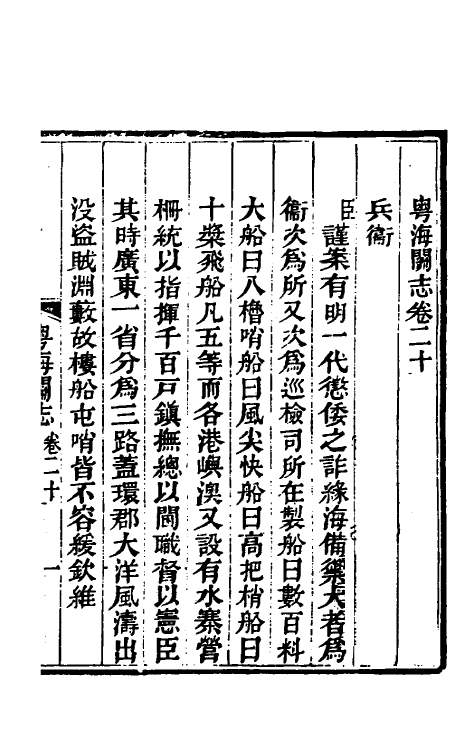 粵海關志卷二十
兵衞
臣謹案有明一代懲倭之詐緣海備禦大者爲
衞次爲所又次爲巡檢司所在製船曰數百料
大船曰八櫓哨船曰風尖快船曰高把梢船曰
十槳飛船凡五等而各港嶼澳又設有水寨營
柵統以指揮千百戸鎮撫總以閫職督以憲臣
其時廣東一省分爲三路蓋環郡大洋風濤出
没盜賊淵藪故樓船屯哨皆不容緩欽維
粵海關志 卷二十 一